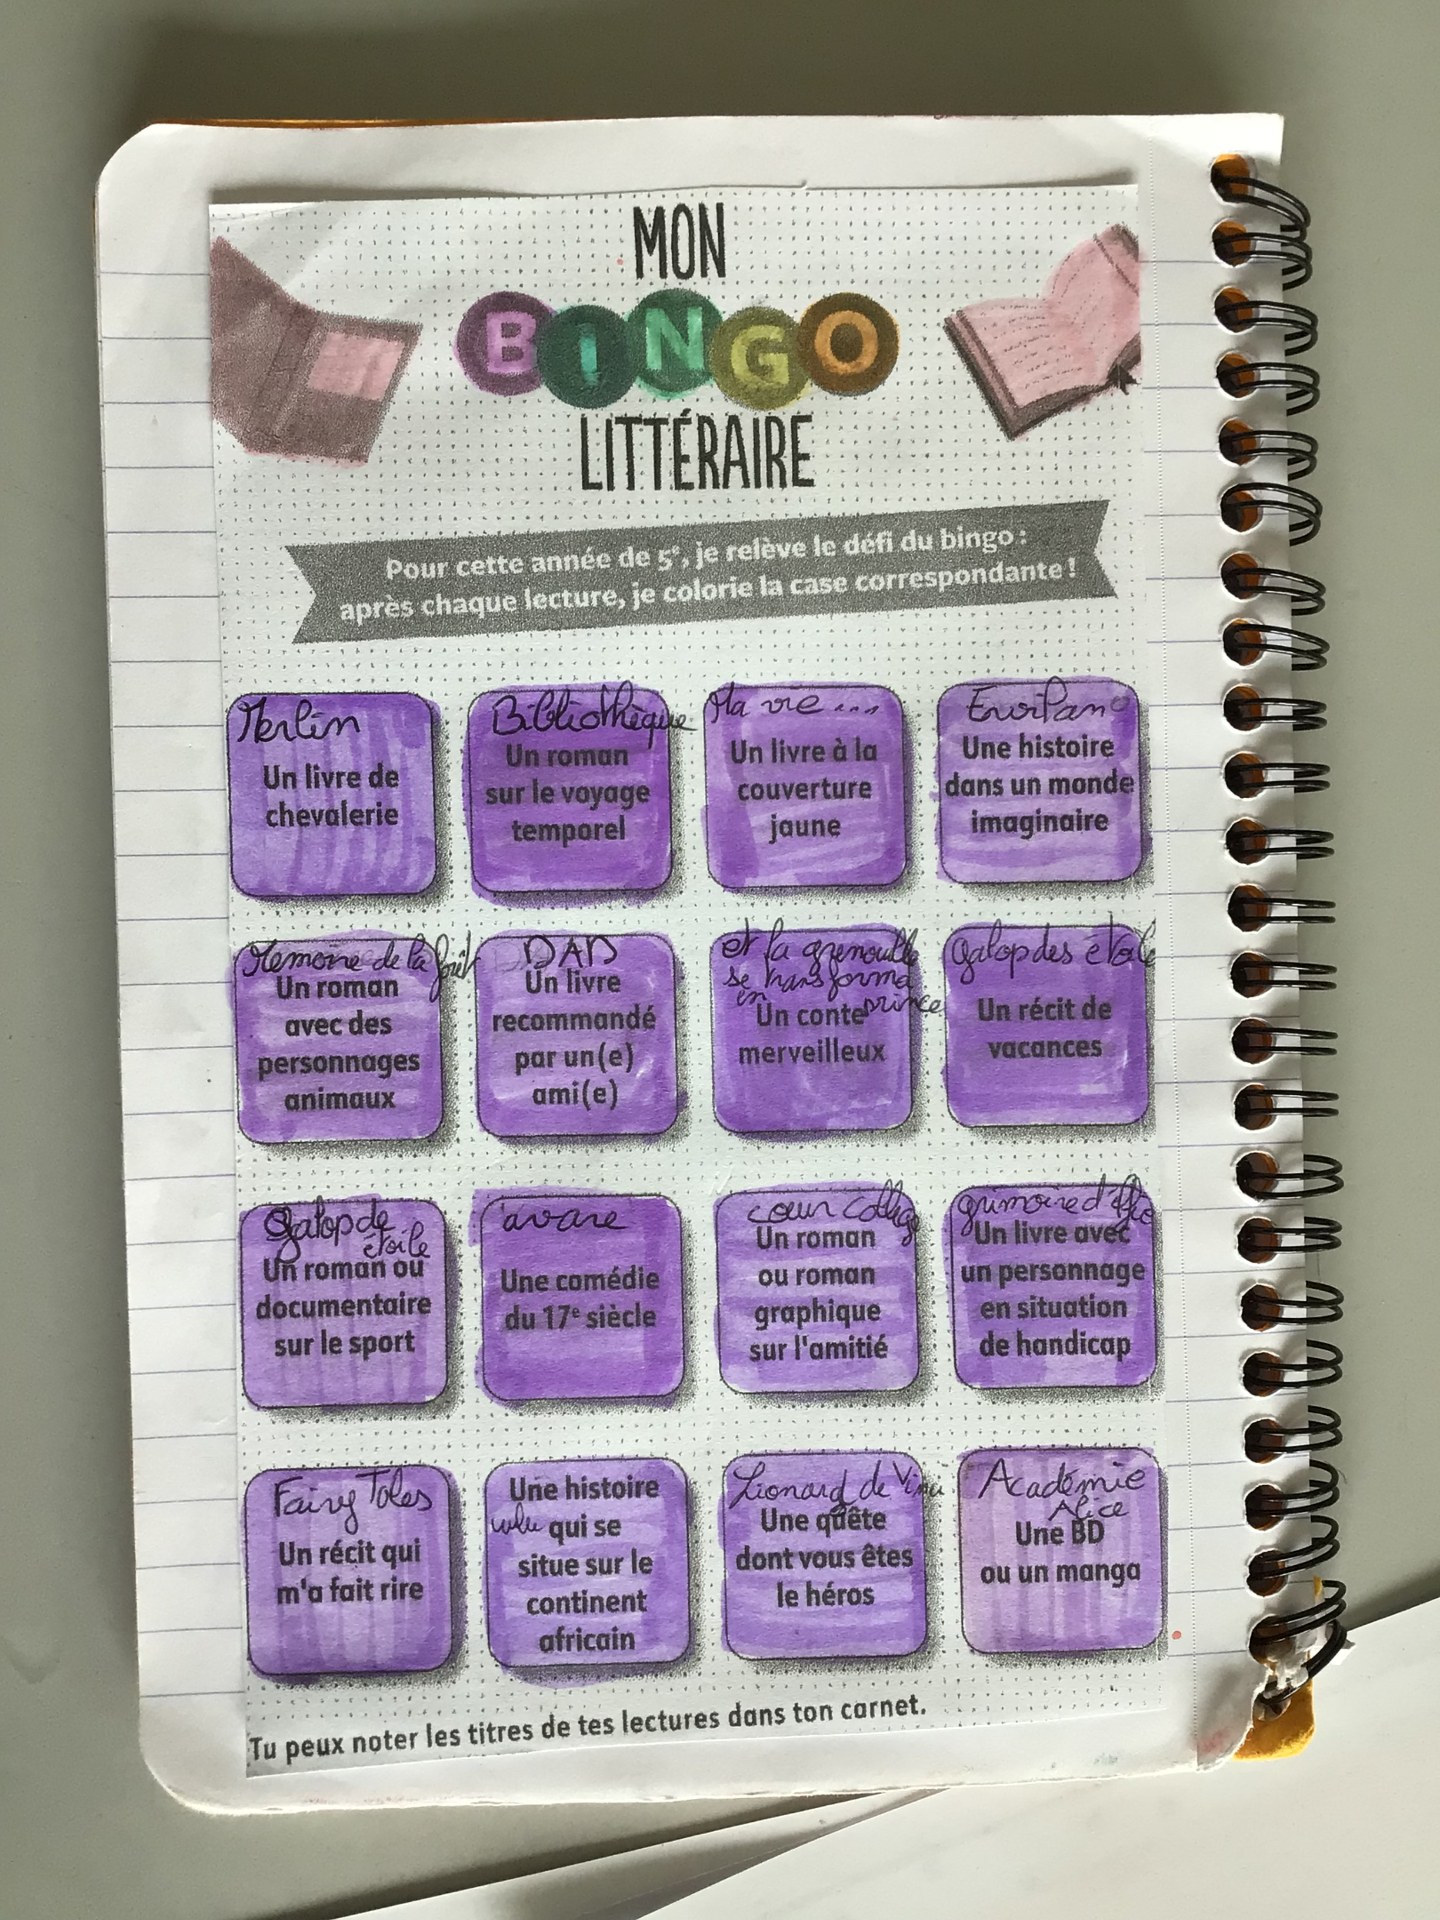 MON
BINGO
LITTÉRAIRE
Pour cette année de 5e, je relève le défi du bingo :
après chaque lecture, je colorie la case correspondante !
Merlin
Un livre de
chevalerie
Bibliothèque
Un roman
sur le voyage
temporel
Ma vie ...
Un livre à la
couverture
jaune
Une histoire
dans un monde
imaginaire
Memoire de la forêt
Un roman
avec des
personnages
animaux
DAD
Un livre
recommandé
par un(e)
ami(e)
et la grenouille
se transforma
en prince
Un conte
merveilleux
Galop des étoile
Un récit de
vacances
Galop de
étoile
Un roman ou
documentaire
sur le sport
l'avare
Une comédie
du 17e siècle
cœur collège
Un roman
ou roman
graphique
sur l'amitié
grimoire
Un livre avec
un personnage
en situation
de handicap
Fairy Tales
Un récit qui
m'a fait rire
Une histoire
qui se
situe sur le
continent
africain
Léonard de Vinci
Une quête
dont vous êtes
le héros
Académie
Alice
Une BD
ou un manga
Tu peux noter les titres de tes lectures dans ton carnet.